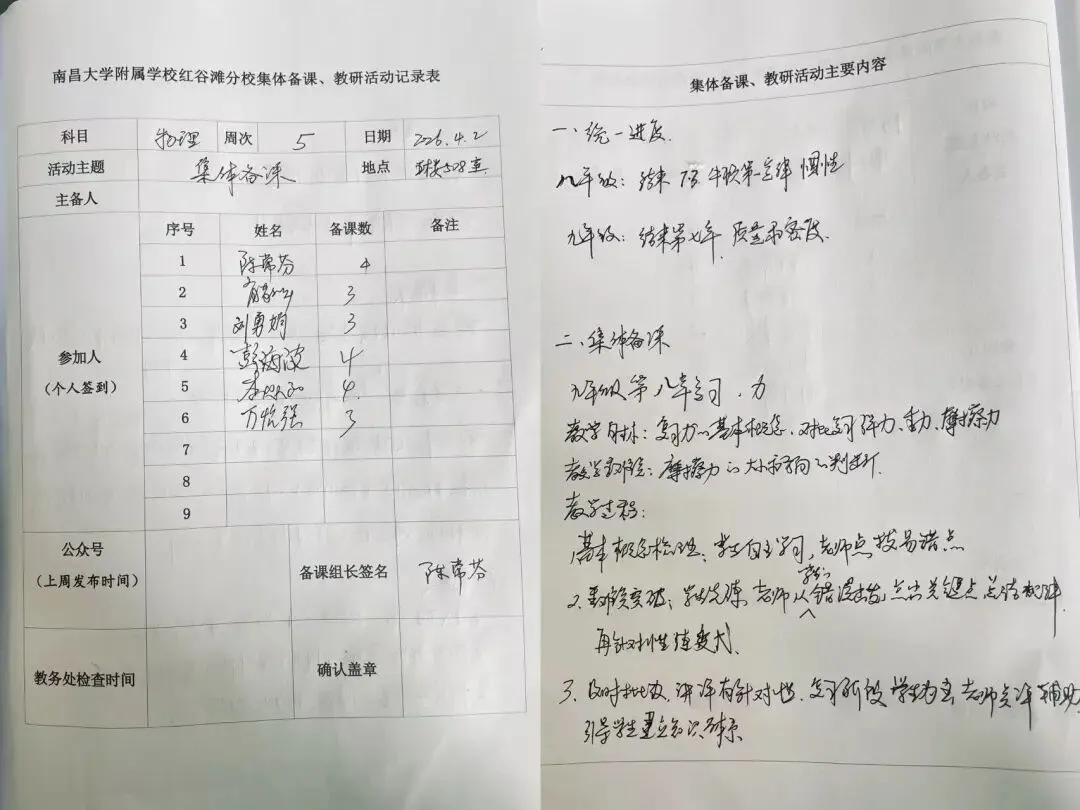 南昌大学附属学校红谷滩分校集体备课、教研活动记录表
科目 物理 周次 5 日期 226.4.2
活动主题 集体备课 地点 508室
主备人
参加人
（个人签到）
序号 姓名 备课数 备注
1 陈常芬 4
2 3
3 刘勇娟 3
4 彭海波 4
5 4
6 万怡强 3
7
8
9
公众号
（上周发布时间）
备课组长签名 陈常芬
教务处检查时间
确认盖章
集体备课、教研活动主要内容
一、统一进度.
八年级：结束 牛顿第一定律 惯性
九年级：结束第七章 质量和密度.
二、集体备课
九年级第八章复习. 力
教学目标：复习力的基本概念、对比复习弹力、重力、摩擦力
教学重难点：摩擦力的大小和方向的判断.
教学过程：
基本概念梳理：学生自主学习，老师点拨易错点
2. 重难点突破：学生先练，老师从学生错误出发，点出关键点，总结规律.
再针对性练变式.
3. 及时批改、讲评有针对性. 复习阶段学生为主老师点评辅助
引导学生建立知识体系